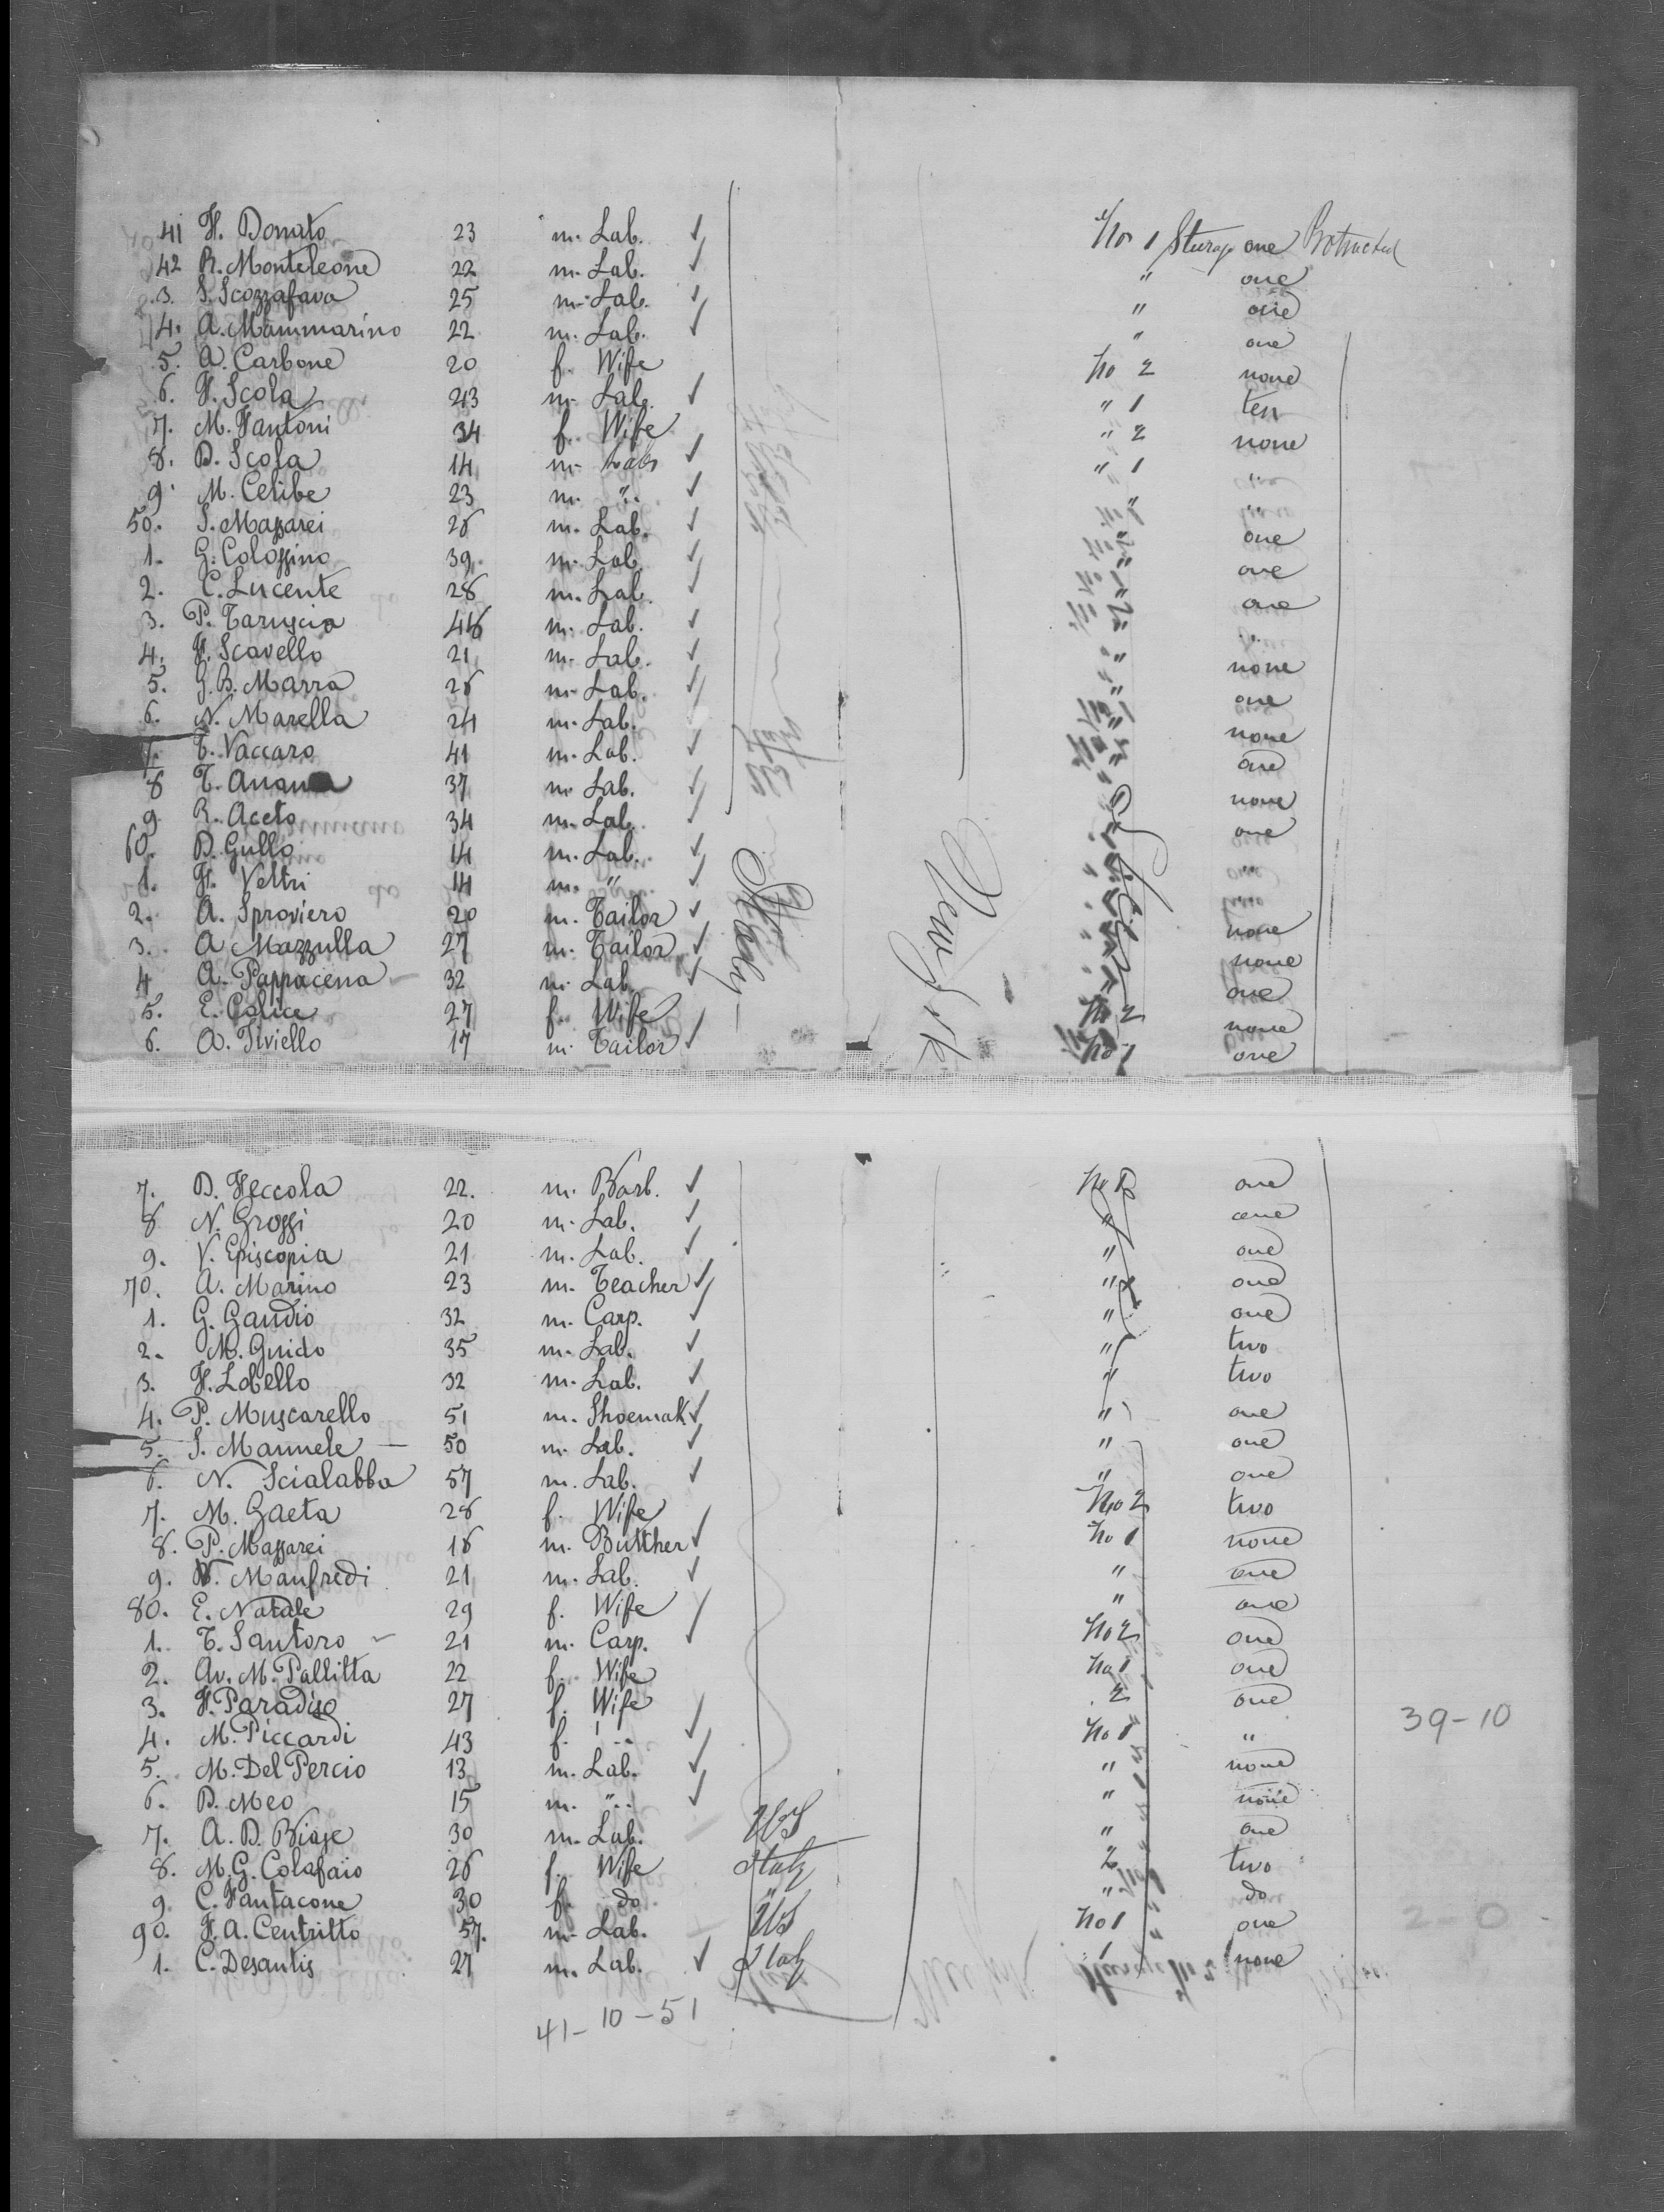 41 F. Donato 23 m. Lab. ✓ No 1 Sturage one Protracted
42 R. Monteleone 22 m. Lab. ✓ " one
3. S. Scozzafava 25 m. Lab. ✓ " one
4. A. Mammarino 22 m. Lab. ✓ " one
5. A. Carbone 20 f. Wife No 2 none
6. F. Scola 23 m. Lab. ✓ " 1 ten
7. M. Fantoni 34 f. Wife " 2 none
8. D. Scola 14 m. Labr ✓ " 1 "
9. M. Celibe 23 m. " ✓ "
50. S. Mazzarei 26 m. Lab. ✓ one
1. G. Colozzino 39 m. Lab. ✓ one
2. C. Lucente 28 m. Lab. ✓ one
3. P. Taruscio 46 m. Lab. ✓ "
4. F. Scavello 21 m. Lab. ✓ " none
5. G. B. Marra 26 m. Lab. ✓ " one
6. N. Marella 24 m. Lab. ✓ none
7. T. Vaccaro 41 m. Lab. ✓ one
8 T. 37 m Lab. ✓ none
9 R. Aceto 34 m. Lab. ✓ one
60. D. Gullo 14 m. Lab. ✓ "
1. F. Veltri 14 m. " ✓
2. A. Sproviero 20 m. Tailor ✓ none
3. A Mazzulla 27 m. Tailor ✓ none
4 A. Pappacena 32 m. Lab. ✓ one
5. E. Calice 27 f. Wife No 2 none
6. A. Tiviello 17 m. Tailor ✓ No 1 one
Italy
New York
7. D. Feccola 22. m. Barb. ✓ No one
8 N. Grossi 20 m. Lab. ✓ " one
9. V. Episcopia 21 m. Lab. ✓ " one
70. A. Marino 23 m. Teacher ✓ " one
1. G. Gaudio 32 m. Carp. ✓ " one
2. M. Guido 35 m. Lab. ✓ " two
3. F. Lobello 32 m. Lab. ✓ " two
4. P. Muscarello 51 m. Shoemak ✓ " one
5. S. Mannele 50 m. Lab. ✓ " one
6. N. Scialabba 57 m. Lab. ✓ " one
7. M. Gaeta 28 f. Wife No 2 two
8. P. Mazzarei 16 m. Butther ✓ No 1 none
9. Manfredi 21 m. Lab. ✓ " one
80. E. Natale 29 f. Wife " one
1. T. Santoro 21 m. Carp. ✓ No 2 one
2. Av. M. Pallitta 22 f. Wife No 1 one
3. F. Paradiso 27 f. Wife 2 one
39-10
4. M. Piccardi 43 f. " ✓ No 1 "
5. M. Del Percio 13 m. Lab. ✓ " none
6. D. Meo 15 m. " ✓ " none
7. A. D. Biase 30 m. Lab. US " one
8. M. G. Colafaio 26 f. Wife Italy 2 two
9 C. Fantacone 30 f. do " " do
90. F. A. Centritto 57. m. Lab. US No 1 one
2-0
1. C. Desantis 27 m. Lab. ✓ Italy none
41-10-51